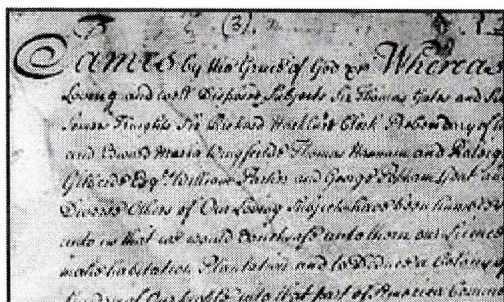 (3)
James by the Grace of God &c Whereas
Loving and well Disposed Subjects Sir Thomas Gates and
Somers Knights Sir Richard Hackluit Clerk Prebendary of
and Edward Maria Wingfield Thomas Hannam and Raleig
Gilberd Esqrs William Parker and George Popham Gent and
Diverse Others of Our Loving Subjects have been humbly
unto us that we would vouchsafe unto them our Licence
make habitation Plantation and to Deduce a Colony
of Our into that part of America